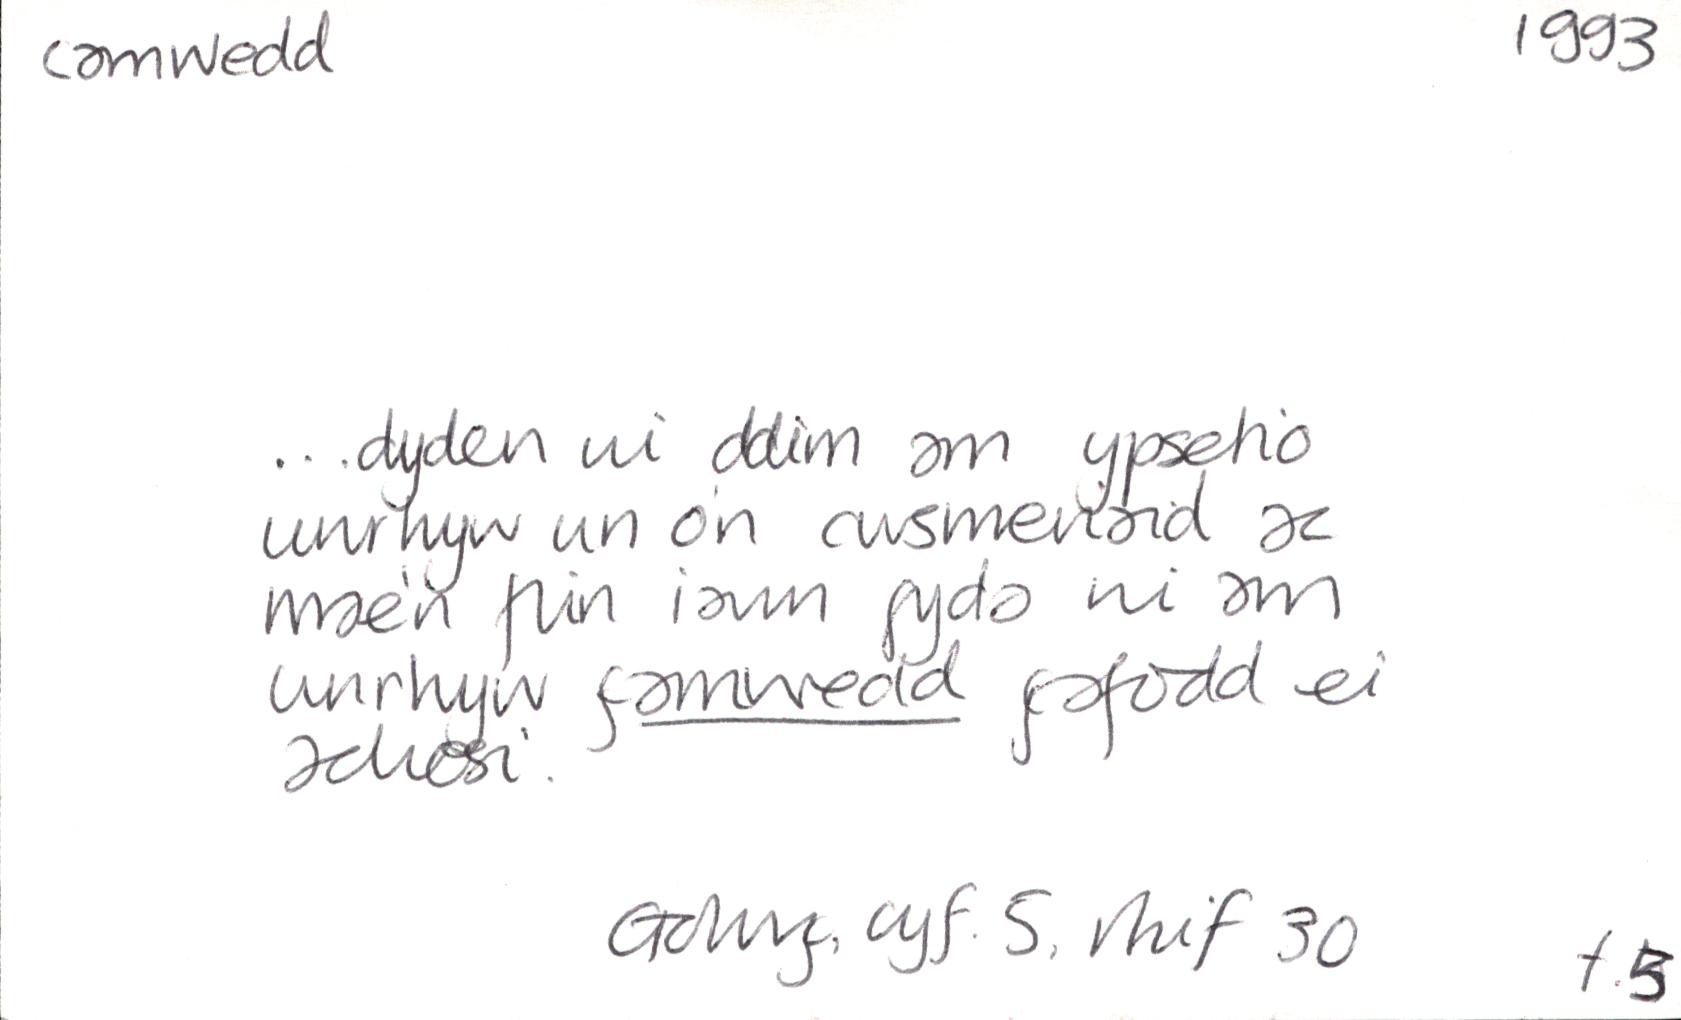 camwedd
1993
...dyden ni ddim am ypsetio
unrhyw un o'n cwsmeriaid ac
mae'n flin iawn gyda ni am
unrhyw gamwedd gafodd ei
achosi.
Golwg, cyf. 5, rhif 30
t.5